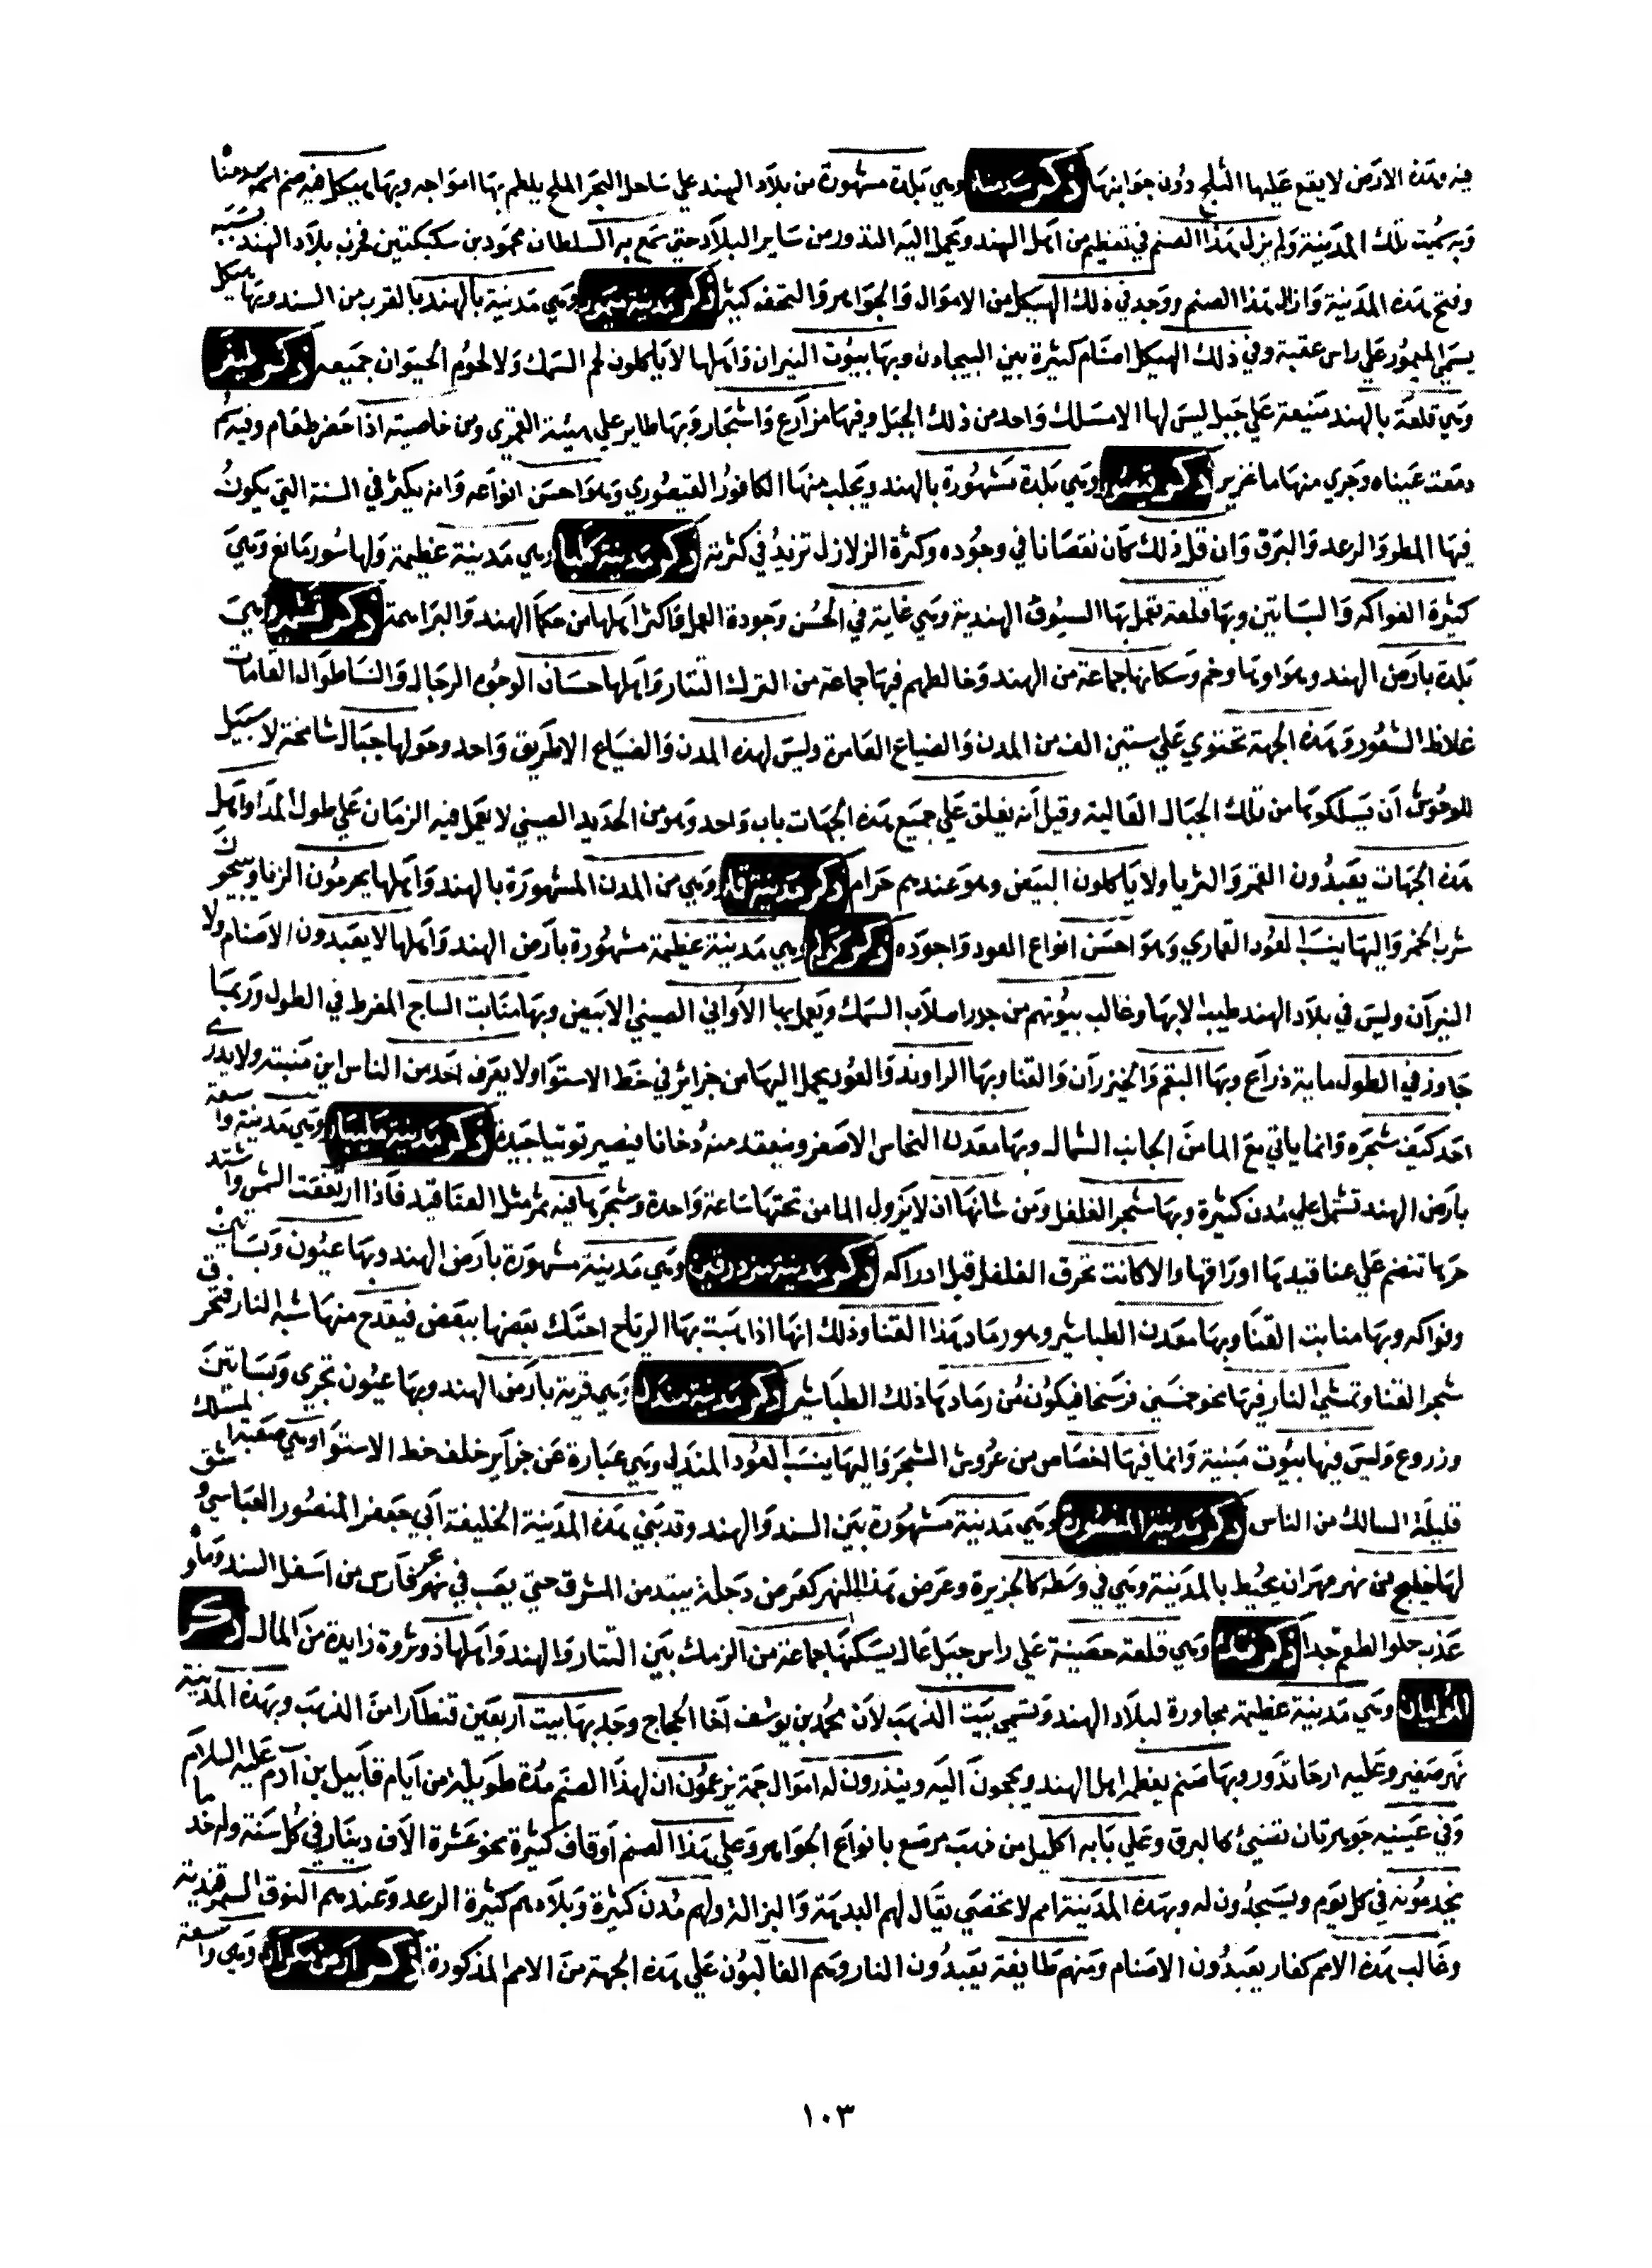 فيه وهذه الارض لا يقع عليها الثلج دون جوانبها ذكر وهي بلدة مشهورة من بلاد الهند علي ساحل البحر الملح يلطم بها امواجه وبها هيكل فيه صنم اسمه
وبه سميت تلك المدينة ولم يزل هذا الصنم في تعظيم من اهل الهند وتحمل اليه النذور من ساير البلاد حتي سمع به السلطان محمود بن سكبكتين فخرب بلاد الهند بسببه
وفتح هذه المدينة وازال هذا الصنم ووجد في ذلك الهيكل من الاموال والجواهر والتحف كثير ذكر مدينة وهي مدينة بالهند بالقرب من السند وبها هيكل
يسمي علي راس عقبة وفي ذلك الهيكل اصنام كثيرة بين وبها بيوت النيران واهلها لا ياكلون لحم السمك ولا لحوم الحيوان جميعه ذكر
وهي قلعة بالهند منيعة علي جبل ليس لها الا مسلك واحد من ذلك الجبل وفيها مزارع واشجار وبها طاير علي هيئة القمري ومن خاصيته اذا حضر طعام وفيه سم
دمعت عيناه وجري منها ما غزير ذكر وهي بلدة مشهورة بالهند ويجلب منها الكافور القيصوري وهو احسن انواعه وانه يكثر في السنة التي يكون
فيها المطر والرعد والبرق وان قل ذلك كان نقصانا في وجوده وكثرة الزلازل تزيد في كثرته ذكر مدينة وهي مدينة عظيمة ولها سور مانع وهي
كثيرة الفواكه والبساتين وبها قلعة تعمل بها السيوف الهندية وهي غاية في الحسن وجودة العمل واكثر اهلها من حكما الهند والبراهمة ذكر وهي
بلدة بارض الهند وهواوها وخم وسكانها جماعة من الهند وخالطهم فيها جماعة من الترك التتار واهلها حسان الوجوه الرجال والنسا طوال القامات
غلاظ الشعور وهذه الجهة تحتوي علي ستين الف من المدن والضياع العامرة وليس لهذه المدن والضياع الا طريق واحد وحولها جبال شامخة لا سبيل
للوحوش ان يسلكوها من تلك الجبال العالية وقيل أنه يغلق علي جميع هذه الجهات باب واحد وهو من الحديد الصيني لا يعمل فيه الزمان علي طول المدا واهل
هذه الجهات يعبدون القمر والثريا ولا ياكلون البيض وهو عندهم حرام ذكر مدينة وهي من المدن المشهورة بالهند واهلها يحرمون الزنا ويبيحون
شرب الخمر واليها ينسب العود القماري وهو احسن انواع العود واجوده ذكر وهي مدينة عظيمة مشهورة بارض الهند واهلها لا يعبدون الاصنام ولا
النيران وليس في بلاد الهند طيب الا بها وغالب بيوتهم من اصلاب السمك ويعمل بها الأواني الصيني الابيض وبها منابت الساج المفرط في الطول وربما
جاوز في الطول ماية ذراع وبها البقم والخيزران والقنا وبها الراوند والعود يحمل اليها من جزاير في خط الاستوا ولا يعرف احد من الناس اين منبته ولا يدري
احد كيف شجره وانما ياتي مع الما من الجانب الشمال وبها معدن النحاس الاصفر وينعقد منه دخانا فيصير توتيا جيدة ذكر مدينة وهي مدينة واسعة
بارض الهند تشتمل علي مدن كثيرة وبها شجر الفلفل ومن شانها ان لا يزول الما من تحتها ساعة واحدة وشجرها فيه ثمر مثل العناقيد فاذا ارتفعت الشمس واشتد
حرها تنضم علي عناقيدها اوراقها والا كانت تحرق الفلفل قبل ادراكه ذكر مدينة وهي مدينة مشهورة بارض الهند وبها عيون وبساتين
وفواكه وبها منابت القنا وبها معدن الطباشير وهو رماد هذا القنا وذلك انها اذا هبت بها الرياح احتك بعضها ببعض فيقدح منها شبه النار فتحرق
شجر القنا وتمشي النار فيها نحو خمسين فرسخا فيكون من رمادها ذلك الطباشير ذكر مدينة مندل وهي قرية بارض الهند وبها عيون تجري وبساتين
وزروع وليس فيها بيوت مبنية وانما فيها اخصاص من عروش الشجر واليها ينسب العود المندلي وهي عبارة عن جزاير خلف خط الاستوا وهي صعبة المسلك
قليلة السالك من الناس ذكر مدينة المنصورة وهي مدينة مشهورة بين السند والهند وقد بني هذه المدينة الخليفة أبي جعفر المنصور العباسي وشق
لها خليج من نهر مهران يحيط بالمدينة وهي في وسطه كالجزيرة وعرض هذا النهر كعرض دجلة يبتد من المشرق حتي يصب في بحر فارس من اسفل السند وماوه
عذب حلو الطعم جدا ذكر وهي قلعة حصينة علي راس جبل عال يسكنها جماعة من الترك بين التتار والهند واهلها ذو ثروة زايدة من المال ذكر
المولتان وهي مدينة عظيمة مجاورة لبلاد الهند وتسمي بيت الذهب لأن محمد بن يوسف اخا الحجاج وجد بها بيت اربعين قنطارا من الذهب وبهذه المدينة
نهر صغير وعليه ارحا تدور وبها صنم يعظمه اهل الهند ويحجون اليه وينذرون له اموال جمة يزعمون ان لهذا الصنم مدة طويلة من ايام قابيل بن آدم عليه السلام
وفي عينيه جوهرتان تضيئ كالبرق وعلي بابه اكليل من ذهب مرصع بانواع الجواهر وعلي هذا الصنم أوقاف كثيرة نحو عشرة الاف دينار في كل سنة وله خدما
يخدمونه في كل يوم ويسجدون له وبهذه المدينة امم لا تحصي يقال لهم البدهة ولهم مدن كثيرة وبلادهم كثيرة الرعد وعندهم النوق السمرقندية
وغالب هذه الامم كفار يعبدون الاصنام ومنهم طايفة يعبدون النار وهم الغالبون علي هذه الجهة من الامم المذكورة ذكر ارض وهي واسعة
١٠٣